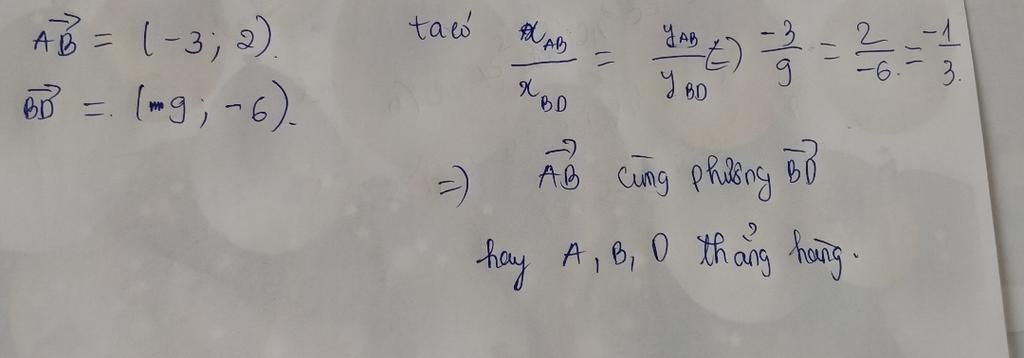 AB→ = (-3; 2).
BD→ = (9; -6).
ta có x_AB / x_BD = y_AB / y_BD (=) -3/9 = 2/-6 = -1/3.
=) AB→ cùng phương BD→
hay A, B, D thẳng hàng.